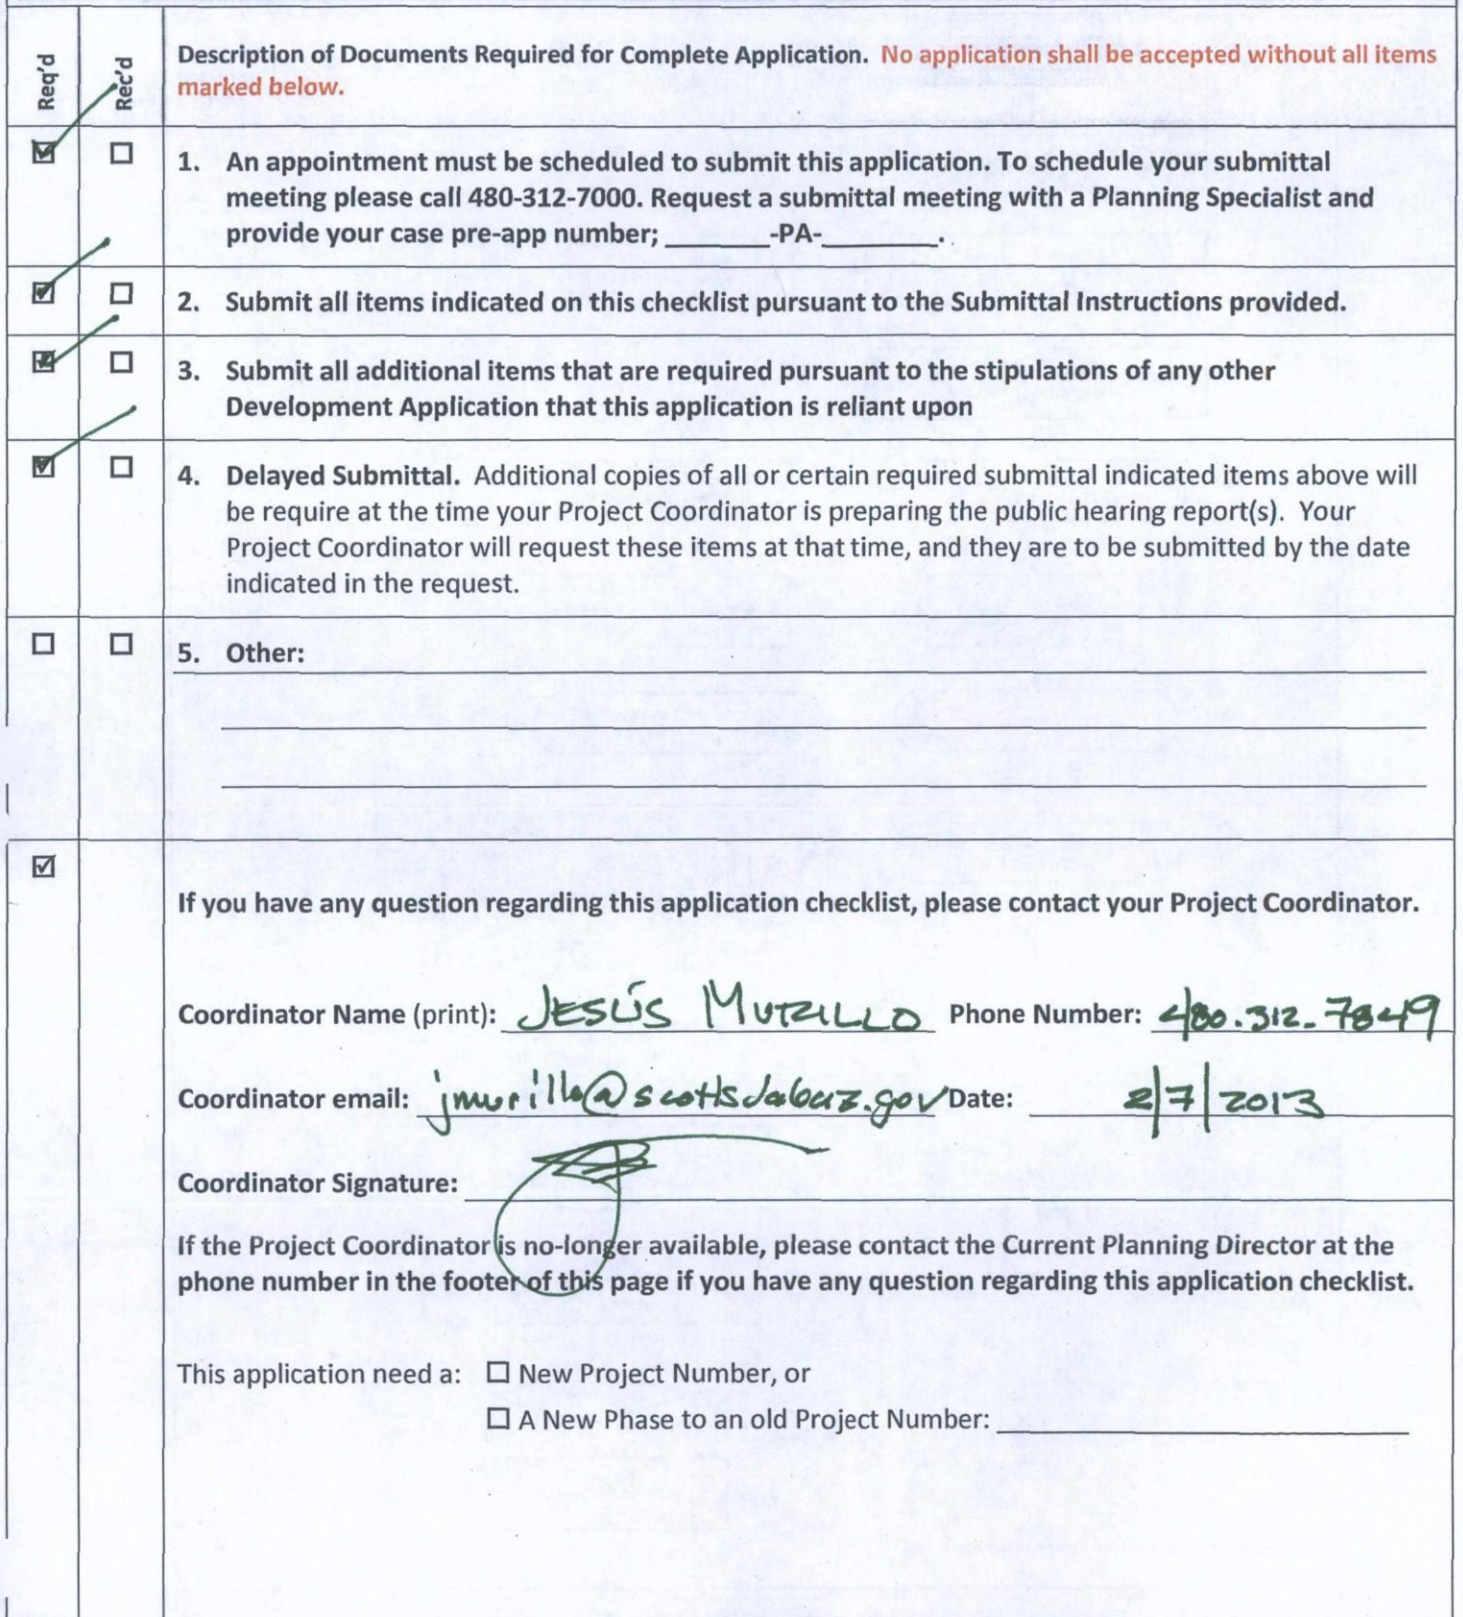 Req'd
Rec'd
Description of Documents Required for Complete Application. No application shall be accepted without all items
marked below.
☑ ☐ 1. An appointment must be scheduled to submit this application. To schedule your submittal
meeting please call 480-312-7000. Request a submittal meeting with a Planning Specialist and
provide your case pre-app number; _______-PA-________.
☑ ☐ 2. Submit all items indicated on this checklist pursuant to the Submittal Instructions provided.
☑ ☐ 3. Submit all additional items that are required pursuant to the stipulations of any other
Development Application that this application is reliant upon
☑ ☐ 4. Delayed Submittal. Additional copies of all or certain required submittal indicated items above will
be require at the time your Project Coordinator is preparing the public hearing report(s). Your
Project Coordinator will request these items at that time, and they are to be submitted by the date
indicated in the request.
☐ ☐ 5. Other:
☑
If you have any question regarding this application checklist, please contact your Project Coordinator.
Coordinator Name (print): JESÚS MURILLO Phone Number: 480.312.7849
Coordinator email: jmurillo@scottsdaleaz.gov Date: 2/7/2013
Coordinator Signature:
If the Project Coordinator is no-longer available, please contact the Current Planning Director at the
phone number in the footer of this page if you have any question regarding this application checklist.
This application need a: ☐ New Project Number, or
☐ A New Phase to an old Project Number: